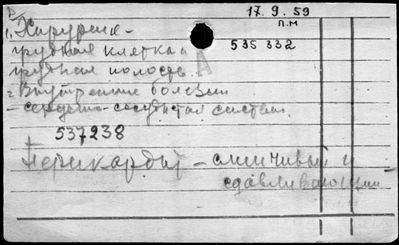 В
17.9.59
п.м
1, Хирургия -
535 332
грудная клетка и
грудная полость. А
2 Внутренние болезни
- сердечно-сосудистая система.
537238
Перикардит - слипчивый и
сдавливающий -